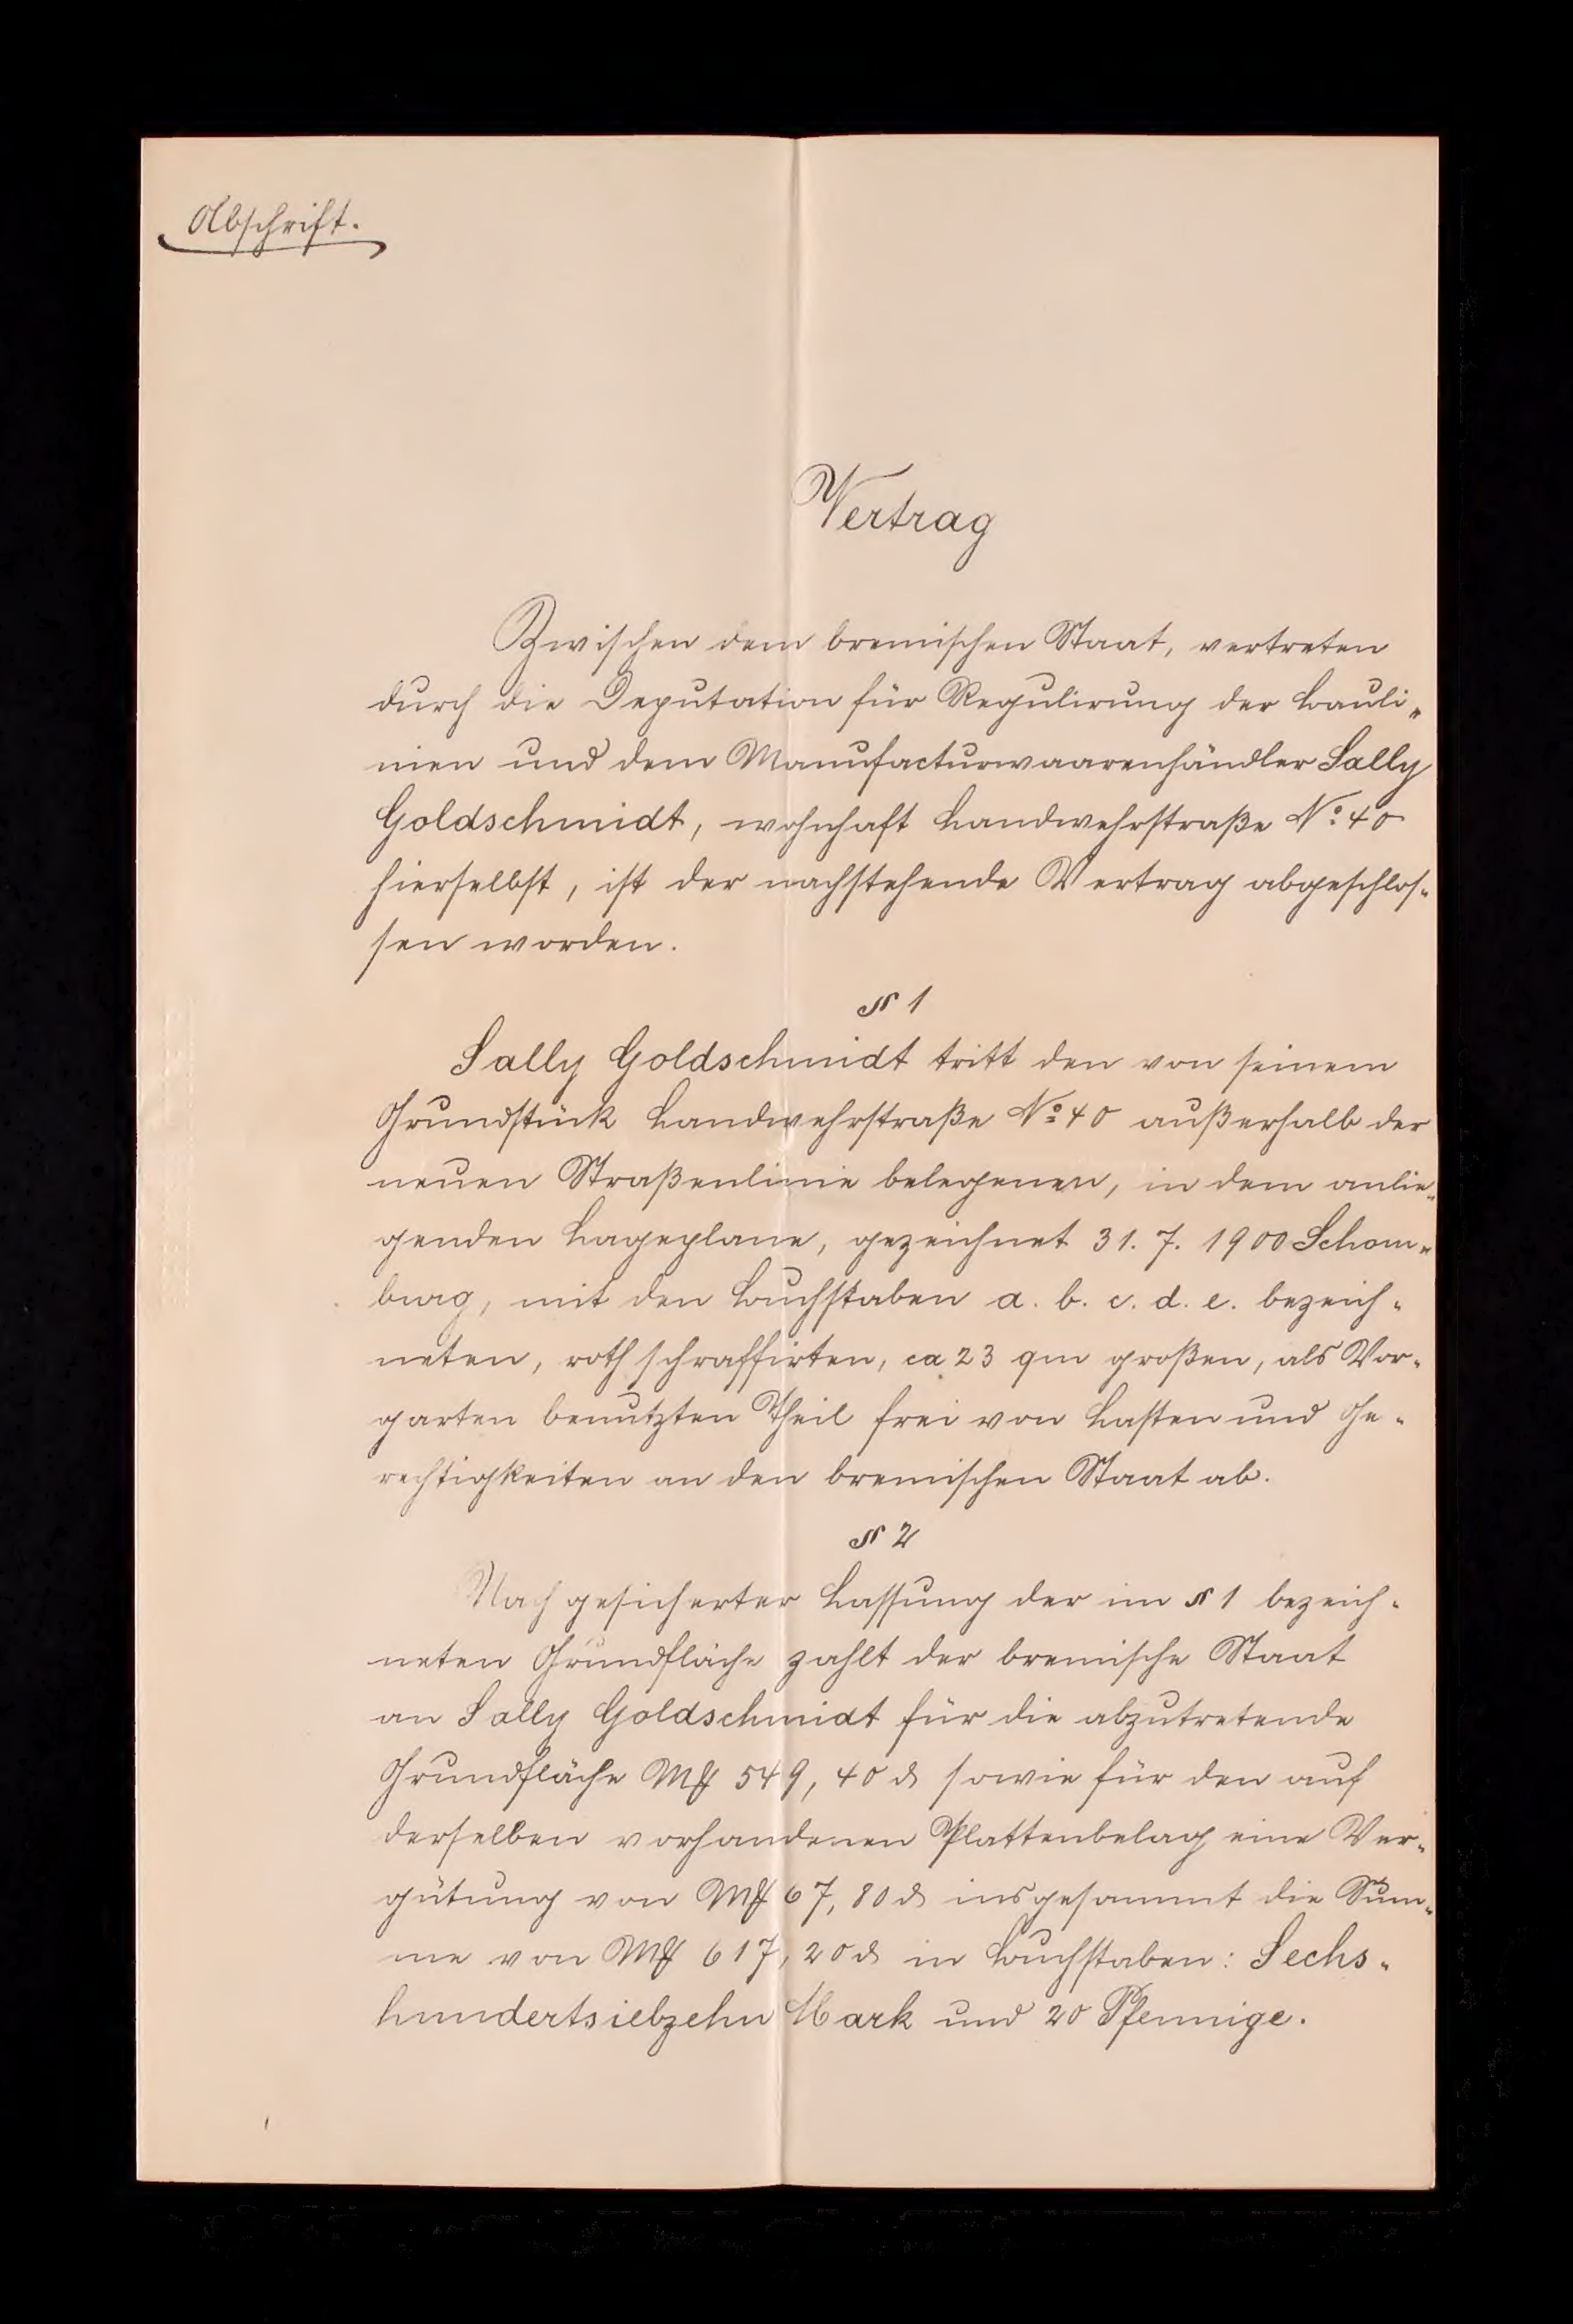 Abschrift.
Vertrag
Zwischen dem bremischen Staat, vertreten
durch die Deputation für Regulirung der Bauli-
nien und dem Manufacturwaarenhändler Sally
Goldschmidt, wohnhaft Landwehrstraße No. 40
hierselbst, ist der nachstehende Vertrag abgeschlos-
sen worden.
§ 1
Sally Goldschmidt tritt den von seinem
Grundstück Landwehrstraße No. 40 außerhalb der
neuen Straßenlinie belegenen, in dem anlie-
genden Lageplane, gezeichnet 31. 7. 1900 Schom-
burg, mit den Buchstaben a. b. c. d. e. bezeich-
neten, roth schraffirten, ca 23 qm großen, als Vor-
garten benutzten Theil frei von Lasten und Ge-
rechtigkeiten an den bremischen Staat ab.
§ 2
Nach gesicherter Lassung der im § 1 bezeich-
neten Grundfläche zahlt der bremische Staat
an Sally Goldschmidt für die abzutretende
Grundfläche Mk 549, 40 ₰ sowie für den auf
derselben vorhandenen Plattenbelag eine Ver-
gütung von Mk 67, 80 ₰ insgesammt die Sum-
me von Mk 617, 20 ₰ in Buchstaben: Sechs-
hundertsiebzehn Mark und 20 Pfennige.